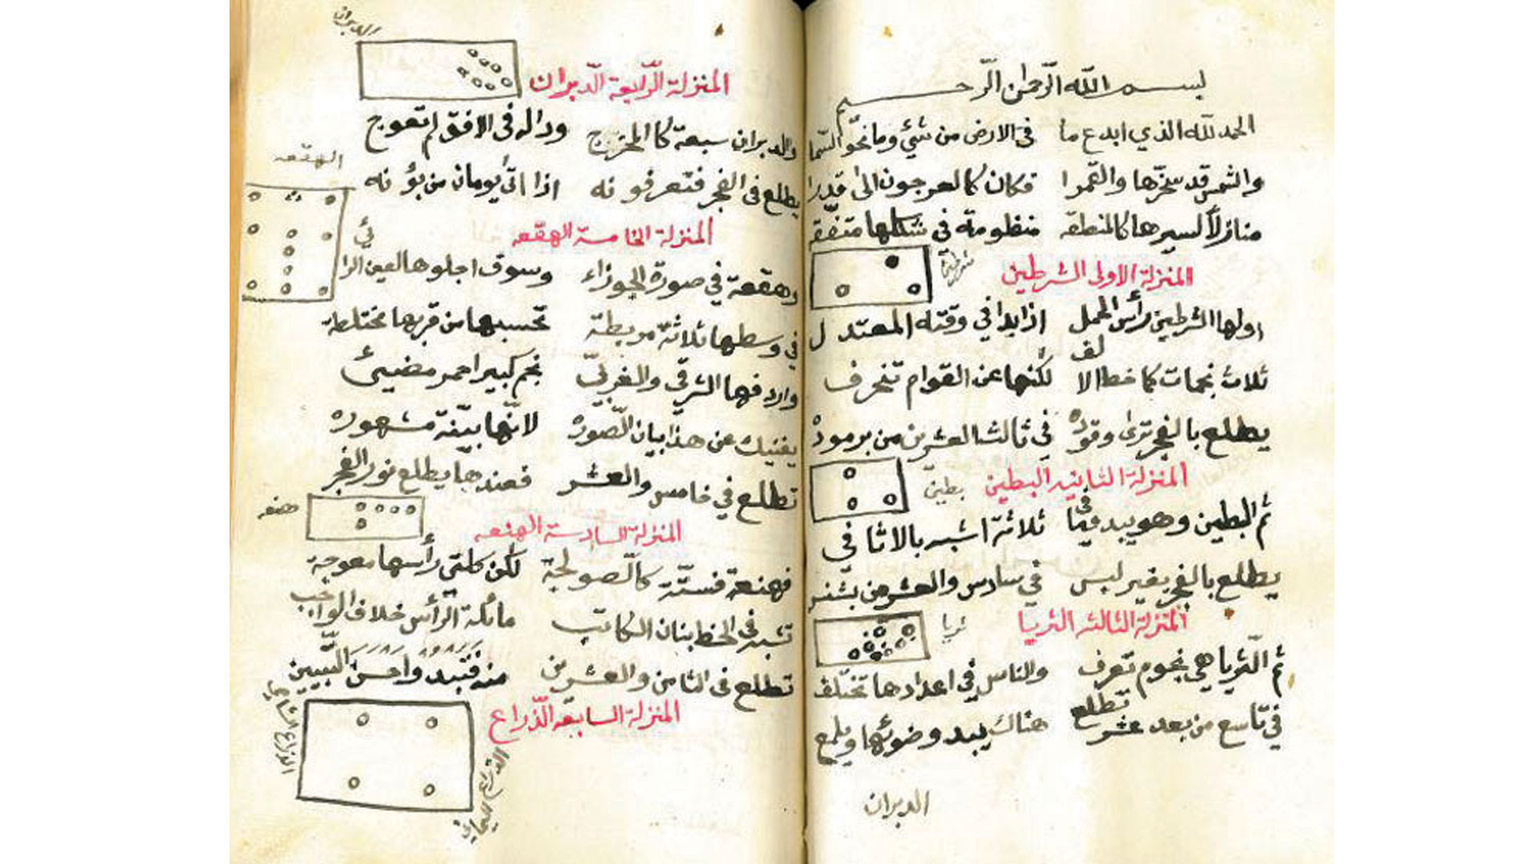 بسم الله الرّحمن الرّحيم
الحمد لله الذي ابدع ما في الارض من شيْ وما نحو السّما
والشمس قد سخّرها والقمرا فكان كالعرجون الى قدرا
منازلاً لسيرها كالمنطقه منظومة في شكلها متفقه
المنزلة الاولى الشرطين
شرطين
اولها الشرطين رأس الحمل اذا بدا في وقته المعتدل
ثلاث نجمات كما خط الالف لكنها عن القوام تنحرف
يطلع بالفجر ترى وقوده في ثالث العشرين من برموده
المنزلة الثانيه البطين
بطين
ثم البطين وهو يبدو ثلاثة اشبه بالاثافي
يطلع بالفجر بغير لبس في سادس والعشر من بشنس
المنزلة الثالثه الثريا
ثريا
ثم الثريا هي نجوم تعرف والناس في اعدادها تختلف
في تاسع من بعد عشر تطلع هناك يبدو ضوئها ويلمع
الدبران
الدبران
المنزلة الرّابعة الدّبران
والدبران سبعة كا المخرج وداله في الافق لم تعوج
يطلع في الفجر فتعرفونه اذا اتى يومان من بؤنه
الهقعه
المنزلة الخامسة الهقعه
وهقعة في صورة الجوزاء وسوف اجلوها لعين الرائي
في وسطها ثلاثة مربطة تحسبها من قربها مختلطة
واردفها الشرقي والغربيّ نجم كبير احمر مضيئ
يغنيك عن هذا بيان الصّوره لانّها بيّنة مشهوره
تطلع في خامس والعشر فعندها يطلع نور الفجر
هنعه
المنزلة السادسة الهنعه
فهنعة فستّة كالصّولجة لكن كلتى رأسها معوجة
تشبه في الخط بنان الكاتب مائلة الرأس خلاف الواجب
تطلع في الثامن والعشرين منه فتبدوا
المنزلة السابعة الذّراع